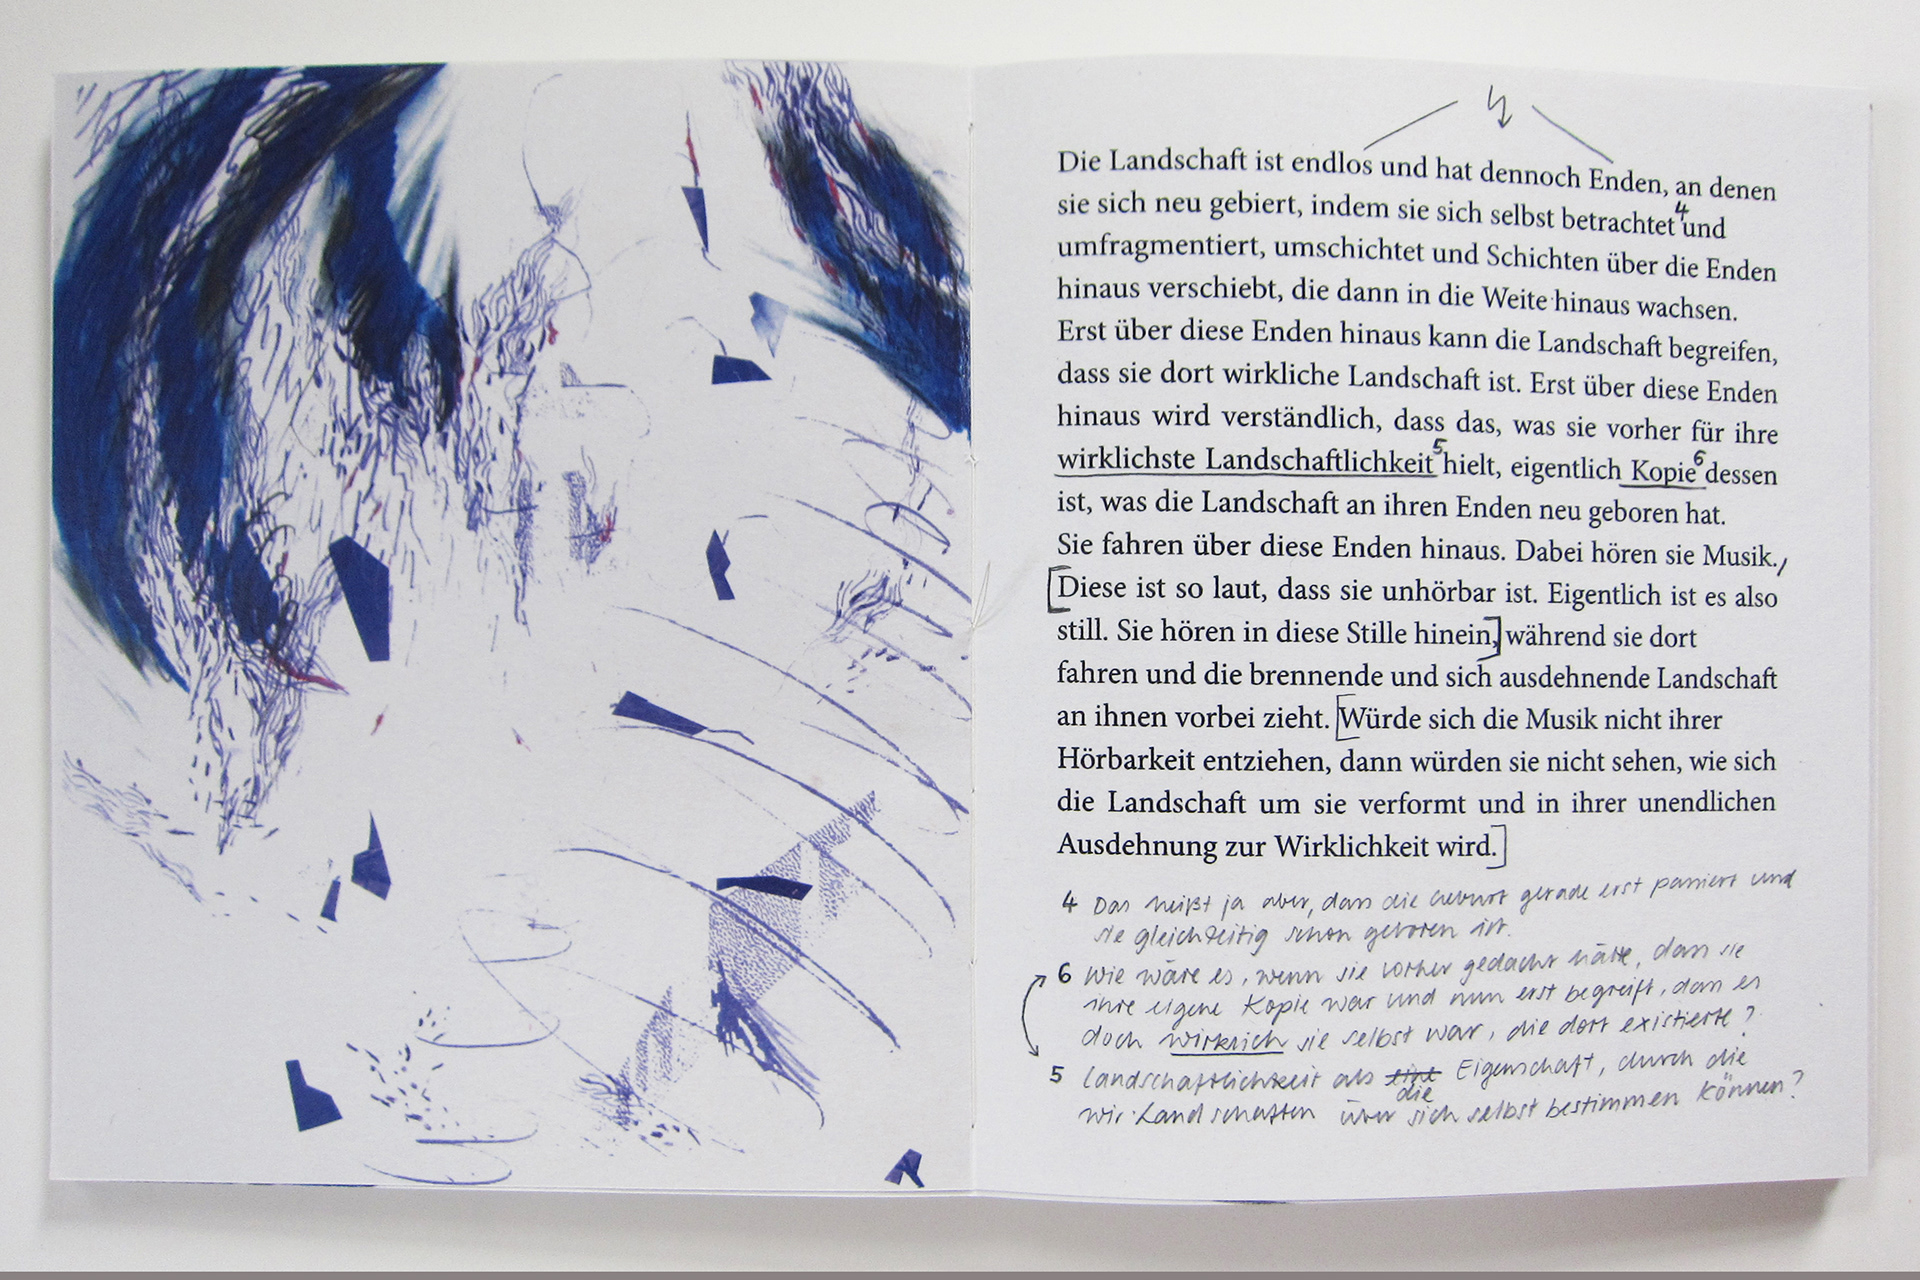 Die Landschaft ist endlos und hat dennoch Enden, an denen
sie sich neu gebiert, indem sie sich selbst betrachtet 4 und
umfragmentiert, umschichtet und Schichten über die Enden
hinaus verschiebt, die dann in die Weite hinaus wachsen.
Erst über diese Enden hinaus kann die Landschaft begreifen,
dass sie dort wirkliche Landschaft ist. Erst über diese Enden
hinaus wird verständlich, dass das, was sie vorher für ihre
wirklichste Landschaftlichkeit 5 hielt, eigentlich Kopie 6 dessen
ist, was die Landschaft an ihren Enden neu geboren hat.
Sie fahren über diese Enden hinaus. Dabei hören sie Musik./
[Diese ist so laut, dass sie unhörbar ist. Eigentlich ist es also
still. Sie hören in diese Stille hinein,] während sie dort
fahren und die brennende und sich ausdehnende Landschaft
an ihnen vorbei zieht. [Würde sich die Musik nicht ihrer
Hörbarkeit entziehen, dann würden sie nicht sehen, wie sich
die Landschaft um sie verformt und in ihrer unendlichen
Ausdehnung zur Wirklichkeit wird.]
4 Das heißt ja aber, dass die Geburt gerade erst passiert und
sie gleichzeitig schon geboren ist.
6 Wie wäre es, wenn sie vorher gedacht hätte, dass sie
ihre eigene Kopie war und nun erst begreift, dass es
doch wirklich sie selbst war, die dort existierte?
5 Landschaftlichkeit als eine die Eigenschaft, durch die
wir Landschaften über sich selbst bestimmen können?